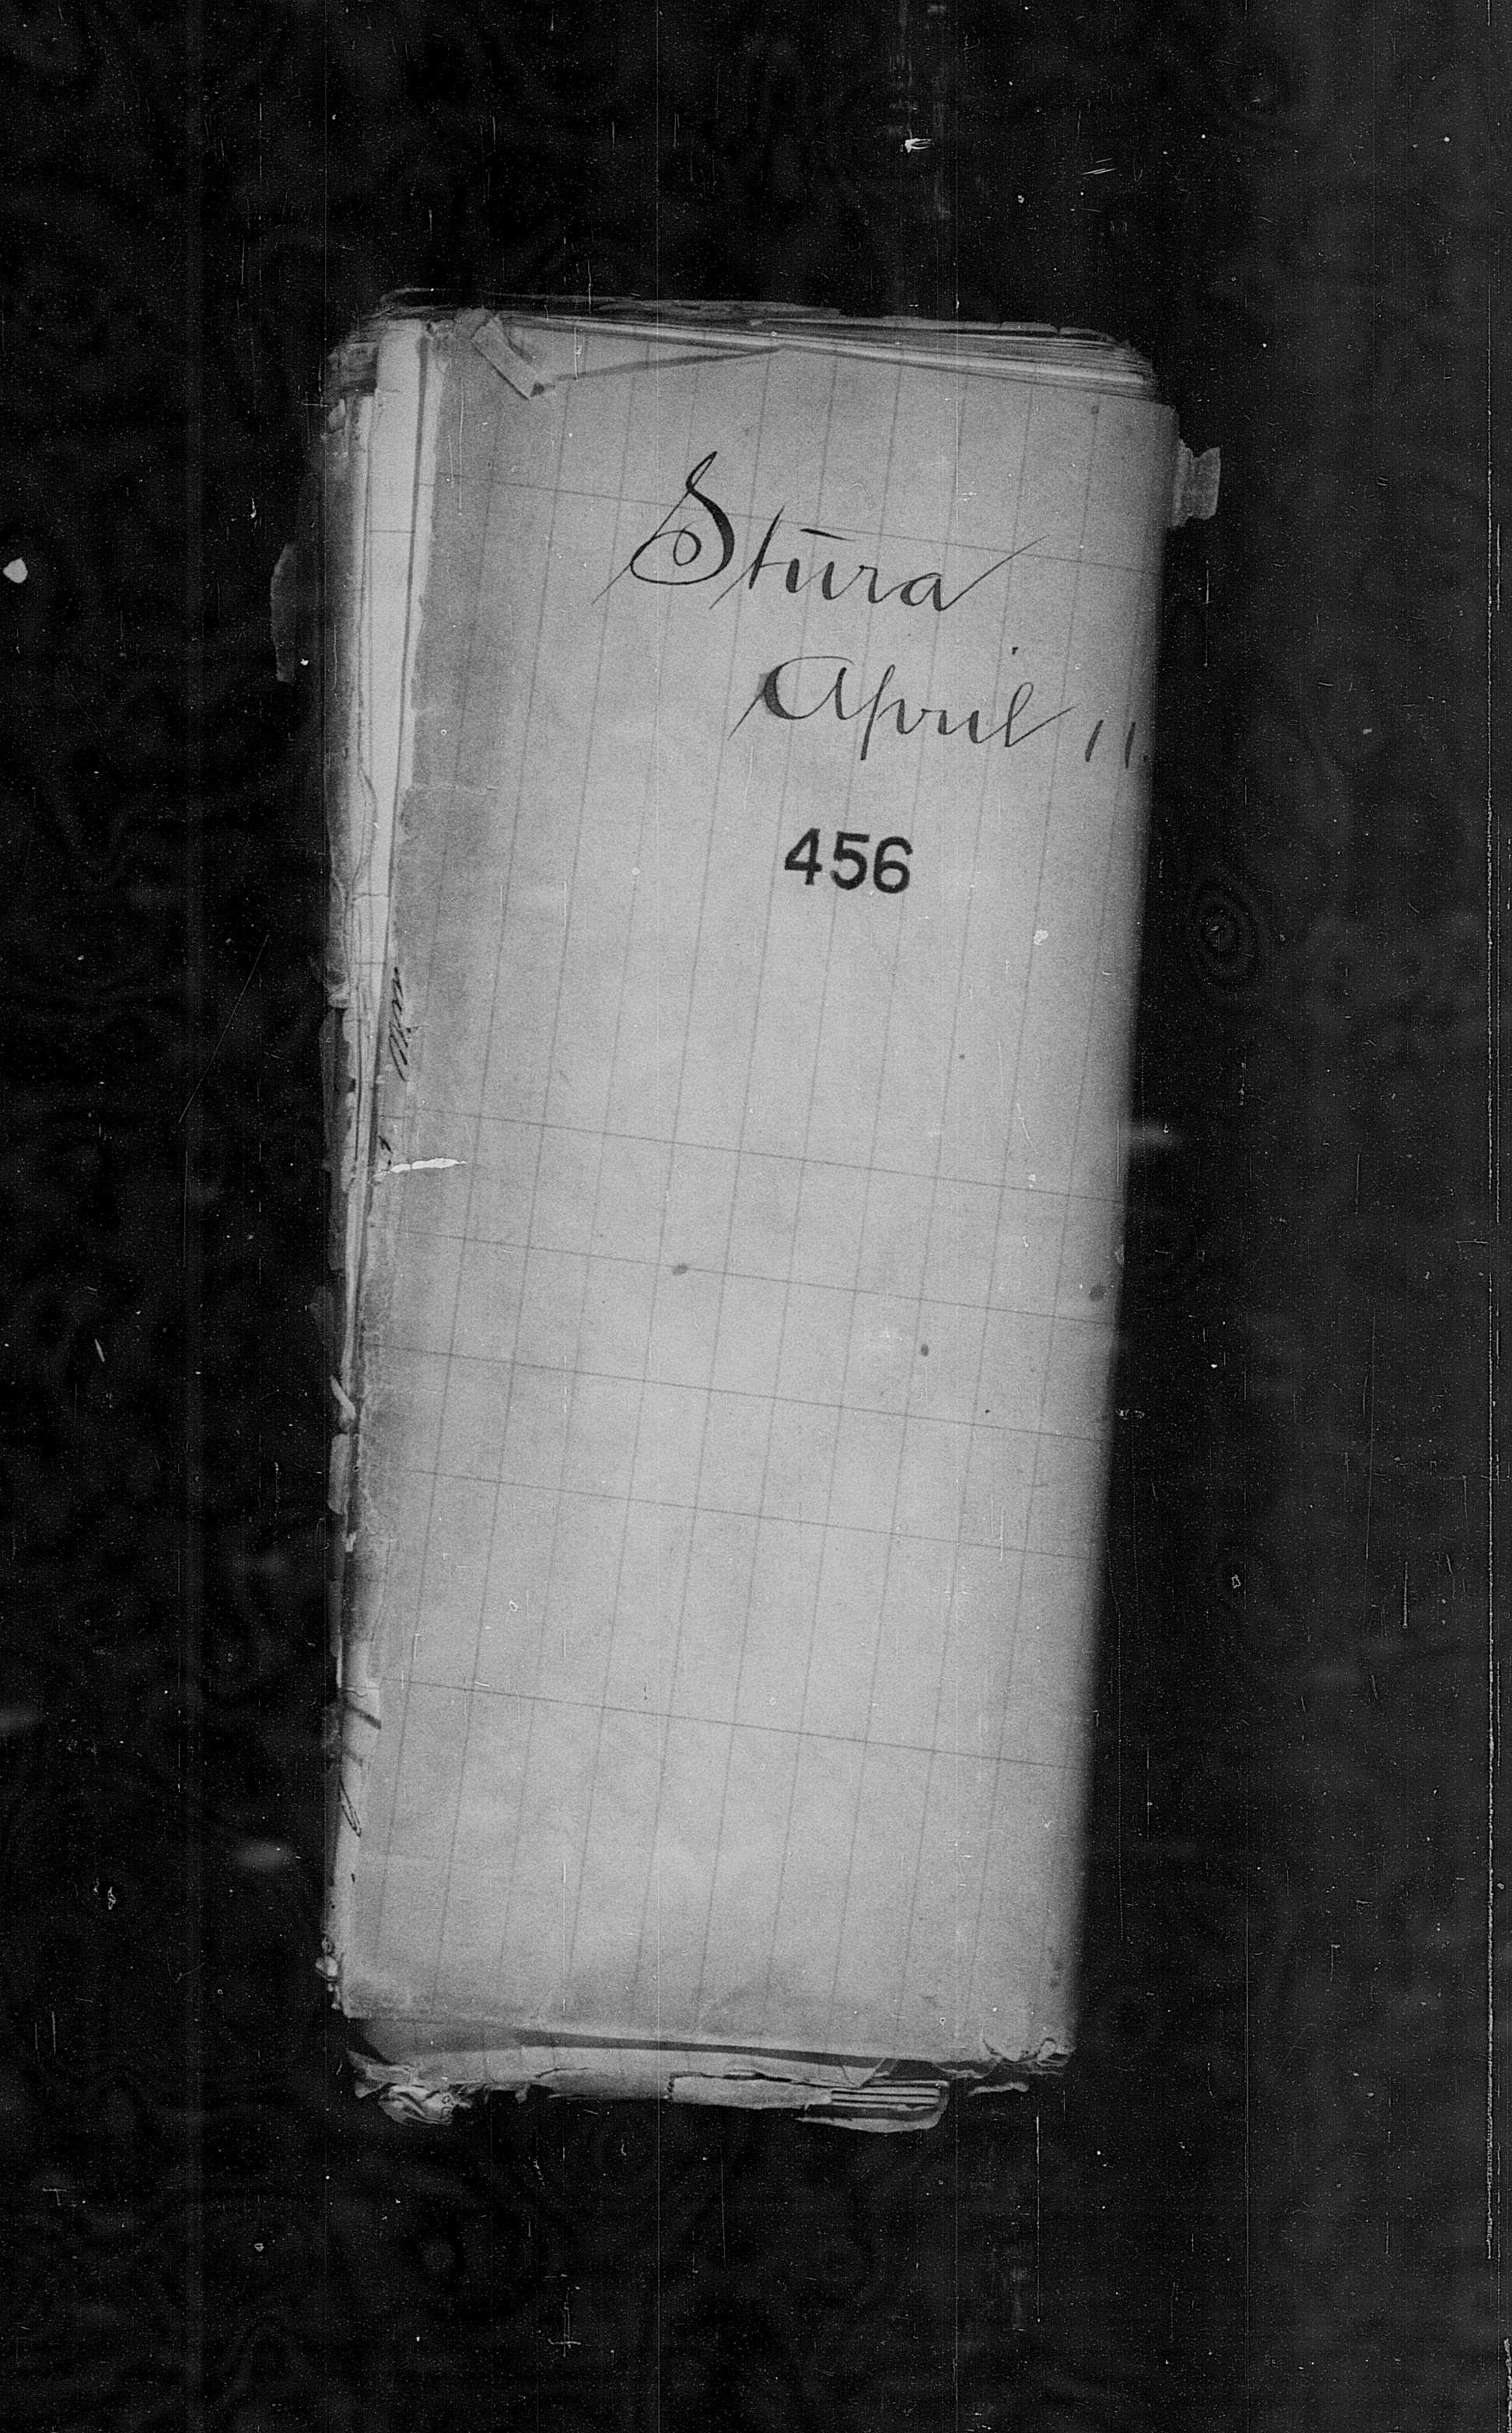 Stūra
April 11.
456